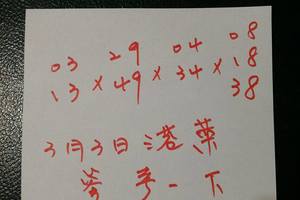 03 29 04 08
13 × 49 × 34 × 18
38
3月3日港葉
参考一下